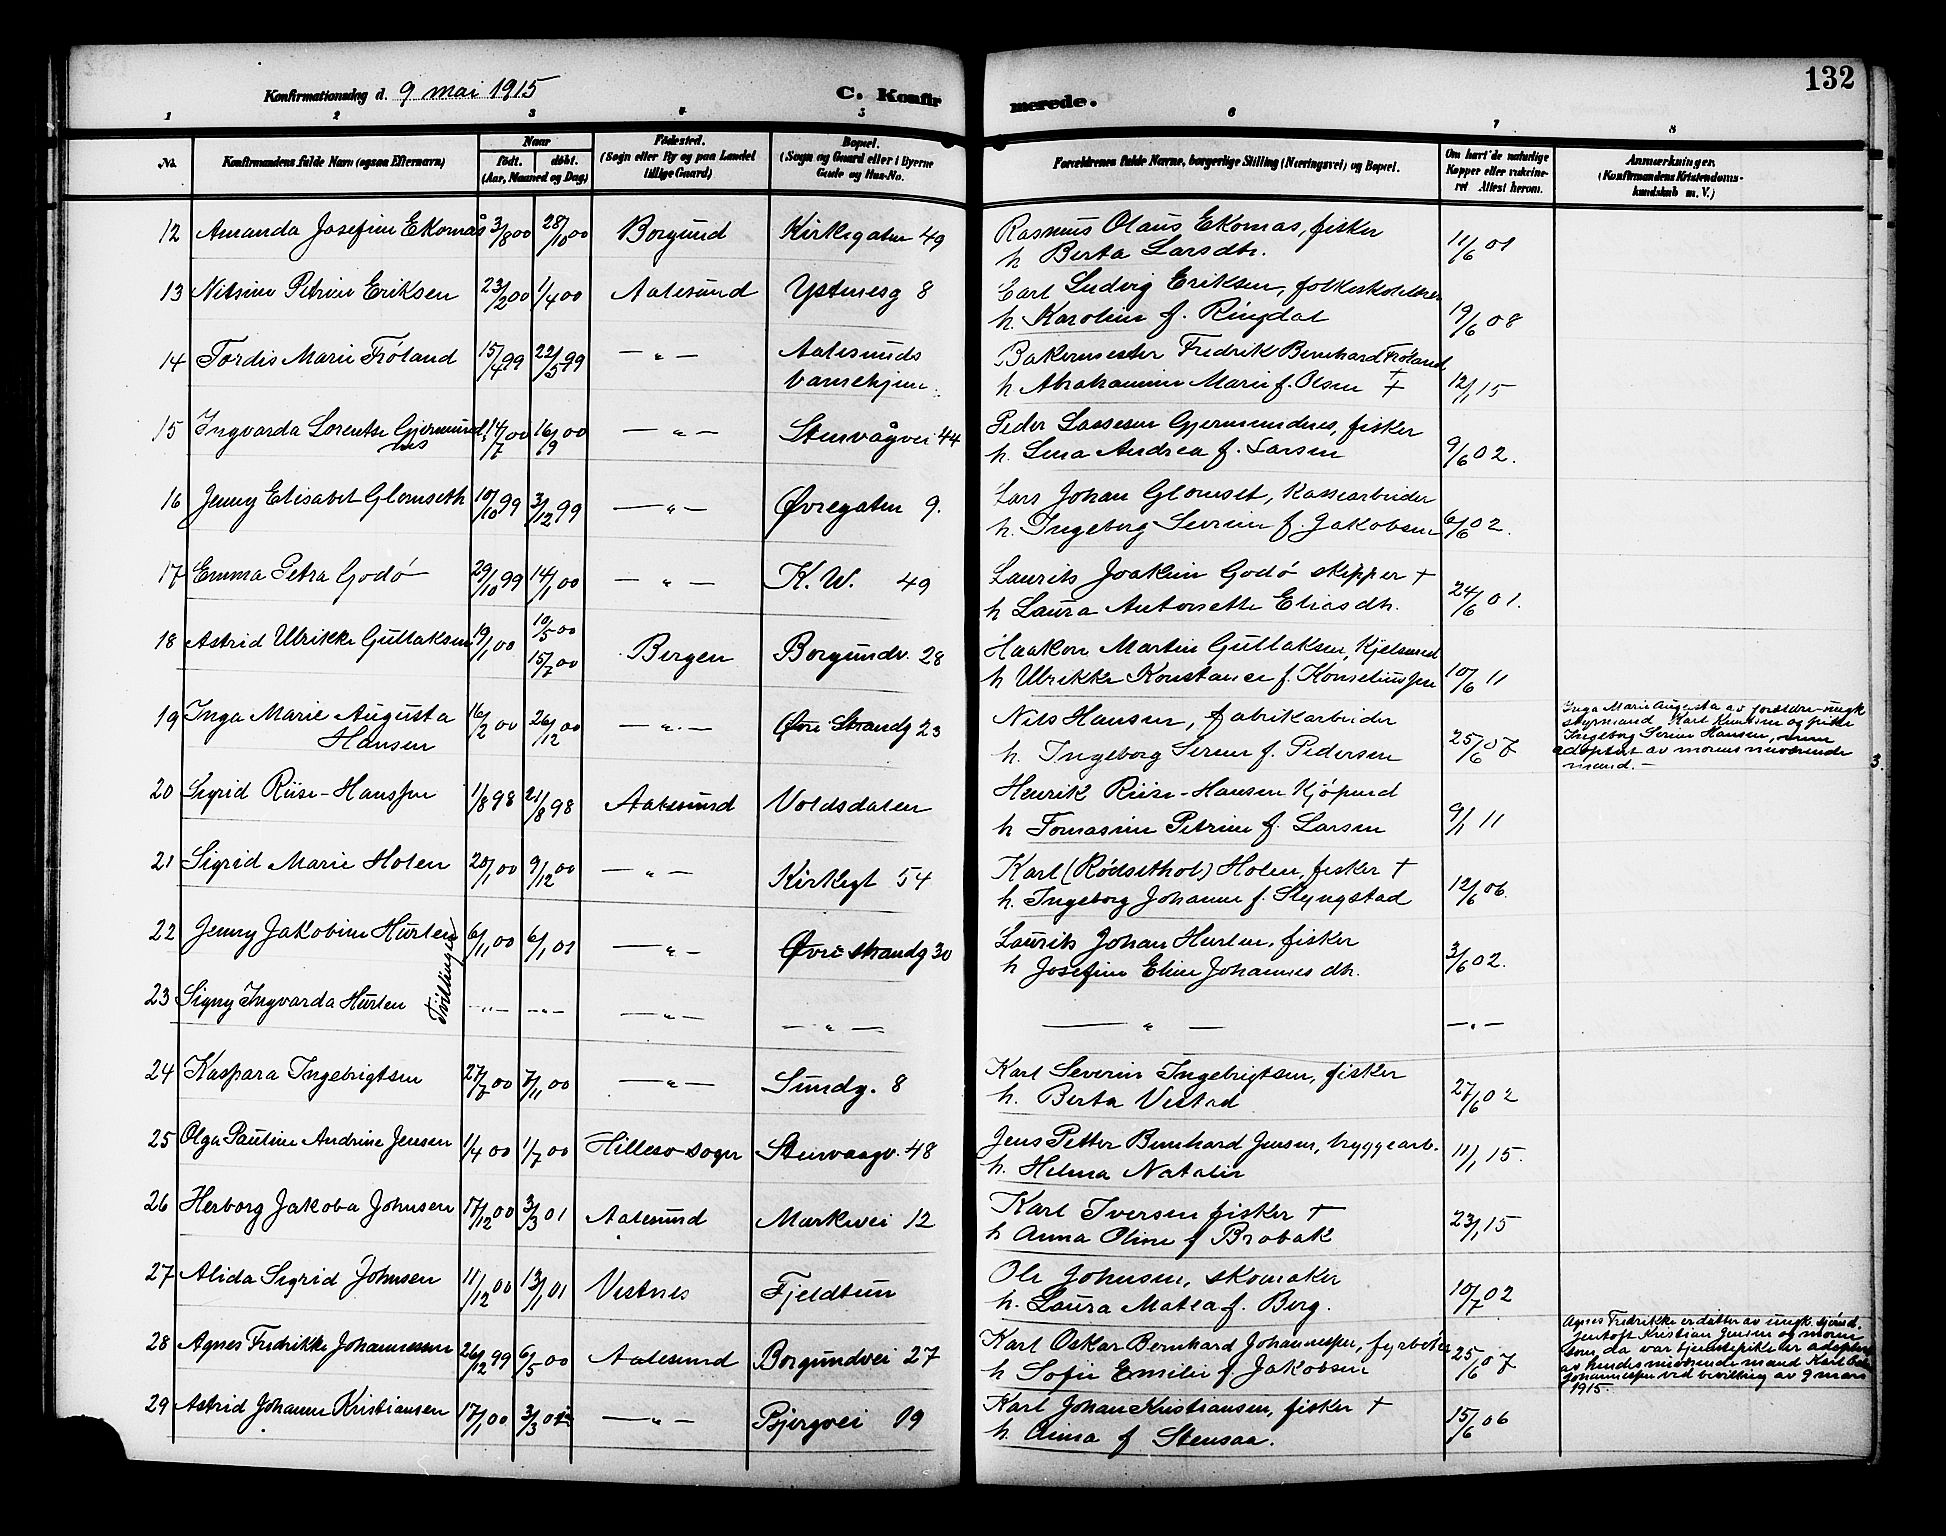 132
Konfirmationsdag d. 9 mai 1915
C. Konfirmerede.
1 2 3 4 5 6 7 8
No. Konfirmandens fulde Navn (ogsaa Efternavn) Naar født. døbt. (Aar, Maaned og Dag) Fødested. (Sogn eller By og paa Landet tillige Gaard) Bopæl. (Sogn og Gaard eller i Byerne Gade og Hus-No. Forældrenes fulde Navne, borgerlige Stilling (Næringsvei) og Bopæl. Om havt de naturlige Kopper eller vaksineret Attest herom. Anmærkninger. (Konfirmandens Kristendomskundskab m. V.)
12 Amanda Josefine Ekornås 3/8 00 28/10 00 Borgund Kirkegaten 49 Rasmus Olaus Ekornas, fisker 11/6 01
h Berta Larsdtr.
13 Nitsine Petrine Eriksen 23/2 00 1/4 00 Aalesund Ystenesg 8 Carl Ludvig Eriksen, folkeskolelærer 19/6 08
h. Karoline f. Ringdal
14 Tordis Marie Frøland 15/4 99 22/5 99 — " — Aalesunds barnehjem. Bakermester Fredrik Bernhard Frøland 12/1 15
h Abrahamine Marie f. Olsen ‡
15 Ingvarda Lorentse Gjermundnes 14/7 00 16/9 00 — " — Stenvågvei 44 Peder Lassesen Gjermundnes, fisker 9/6 02.
h. Lina Andrea f. Larsen
16 Jenny Elisabet Glomseth 10/10 99 3/12 99 — " — Øvregaten 9. Lars Johan Glomset, Kassearbeider 6/6 02.
h. Ingeborg Severine f. Jakobsen
17 Emma Petra Godø 29/10 99 14/1 00 — " — K. W. 49 Laurits Joakim Godø skipper † 24/6 01.
h Laura Antonette Eliasdtr.
18 Astrid Ulrikke Gullaksen 19/1 00 10/5 00 15/7 00 Bergen Borgundv. 28 Haakon Martin Gullaksen, Kjelsmed 10/6 11
h Ulrikke Konstance f. Konseliussen
19 Inga Marie Augusta Hansen 16/2 00 26/12 00 — " — Øvre Strandg 23 Nils Hansen, fabrikarbeider 25/6 07
h. Ingeborg Serine f. Pedersen
Inga Marie Augusta av forældre ungk
styrmand Karl Knutsen og pike
Ingeborg Serine Hansen,
adoptert av morens nuværende
mand. —
20 Sigrid Riise-Hanssen 1/8 98 21/8 98 Aalesund Voldsdalen Henrik Riise-Hansen Kjøpmd 9/1 11
h Tomasine Petrine f. Larsen
21 Sigrid Marie Holen 20/1 00 9/12 00 — " — Kirkegt 54 Karl (Rødsethol) Holen, fisker † 12/6 06.
h. Ingeborg Johanne f. Slyngstad
22 Jenny Jakobine Hurlen 6/11 00 6/1 01 — " — Øvre strandg 30 Laurits Johan Hurlen, fisker 3/6 02.
h Josefine Eline Johannesdtr.
Tvillinger
23 Signy Ingvarda Hurlen — " — — " — — " — — " — — " — — " —
24 Kaspara Ingebrigtsen 27/7 00 7/11 00 — " — Sundg. 8 Karl Severin Ingebrigtsen, fisker 27/6 02
h. Berta Vestad
25 Olga Pauline Andrine Jensen 1/4 00 1/7 00 Hillesø sogn Stenvaagv. 48 Jens Petter Bernhard Jensen, bryggearb. 11/1 15.
h. Helma Natalie
26 Herborg Jakoba Johnsen 17/12 00 3/3 01 Aalesund Markevei 12 Karl Iversen fisker † 23/1 15
h Anna Oline f Brobak
27 Alida Sigrid Johnsen 11/12 00 13/1 01 Vestnes Fjeldtun Ole Johnsen, skomaker 10/7 02
h. Laura Matea f. Berg.
28 Agnes Fredrikke Johannessen 26/12 99 6/5 00 Aalesund Borgundvei 27 Karl Oskar Bernhard Johannessen, fyrbøter 25/6 07
h Sofie Emilie f Jakobsen
Agnes Fredrikke er datter av ungk. sjømd.
Jentoft Kristian Jensen og moren
som da var tjenestepike er adoptert
av hendes nuværende mand Karl
Johannessen ved bevilling av 9 mars
1915.
29 Astrid Johanne Kristiansen 17/1 00 3/3 01 — " — Bjergvei 19 Karl Johan Kristiansen, fisker † 15/6 06
h. Anna f Stensaa.
3.